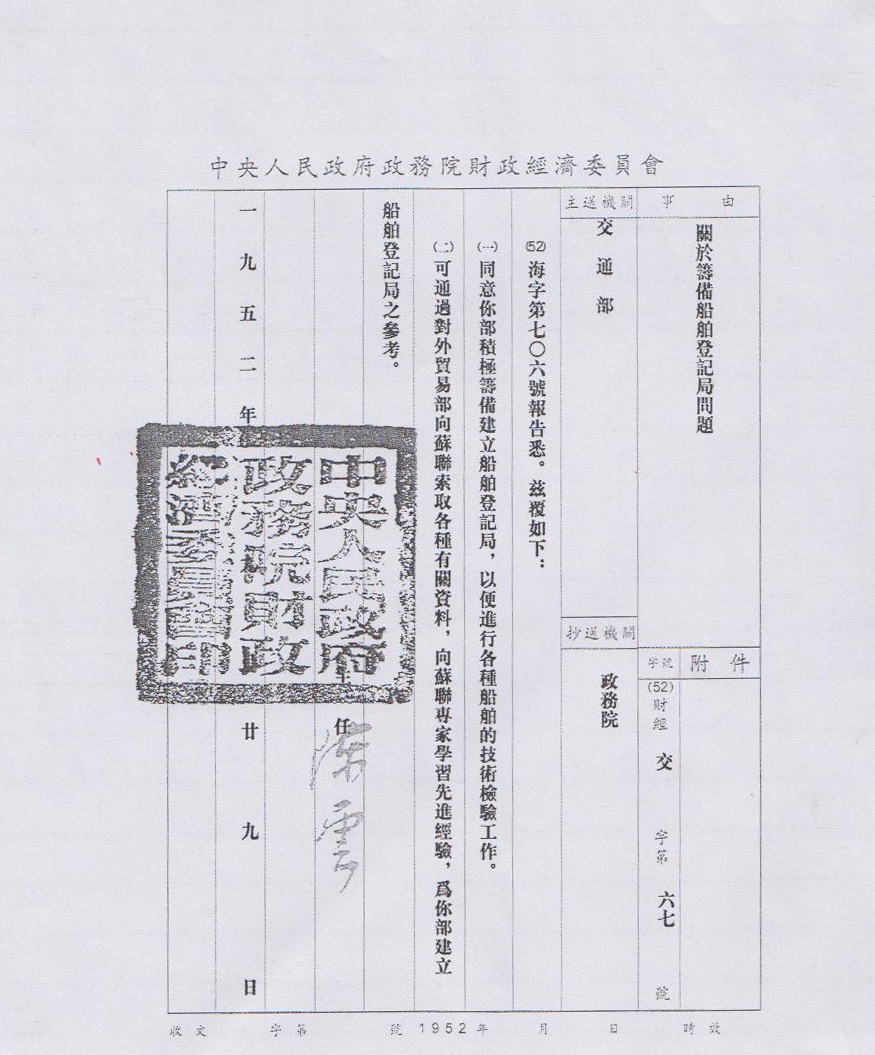 中央人民政府政務院財政經濟委員會
事由
關於籌備船舶登記局問題
附件
字號
(52)財經 交 字第 六七 號
主送機關
交通部
抄送機關
政務院
(52)海字第七〇六號報告悉。茲覆如下：
㈠同意你部積極籌備建立船舶登記局，以便進行各種船舶的技術檢驗工作。
㈡可通過對外貿易部向蘇聯索取各種有關資料，向蘇聯專家學習先進經驗，爲你部建立
船舶登記局之參考。
主任 陳雲
中央人民政府
政務院財政
經濟委員會印
一九五二年
廿九日
收文 字第 號 1952年 月 日 時效